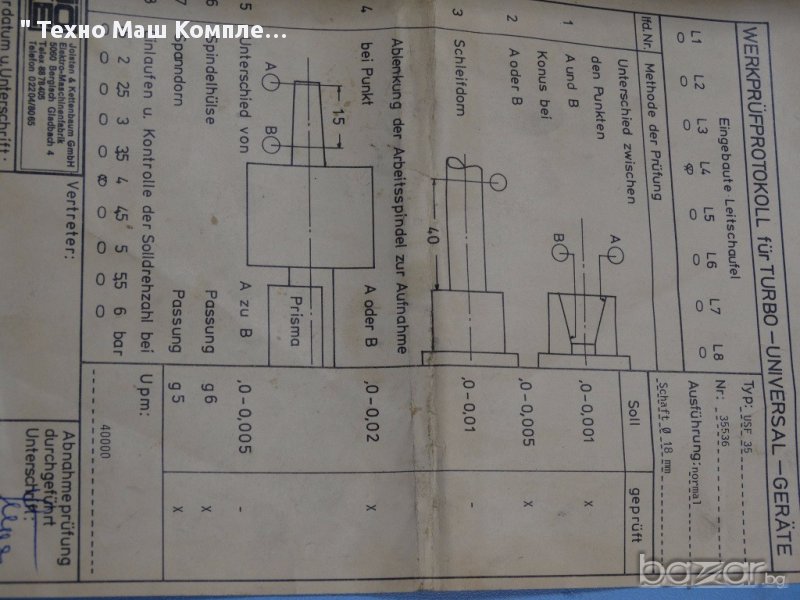 " Техно Маш Компле...
WERKPRÜFPROTOKOLL für TURBO-UNIVERSAL-GERÄTE
Eingebaute Leitschaufel
L1 L2 L3 L4 L5 L6 L7 L8
Typ: USF 35
Nr: 35536
Ausführung: normal
Schaft Ø 18 mm
lfd.Nr. Methode der Prüfung Soll geprüft
Unterschied zwischen
den Punkten
1 A und B ,0-0,001 x
Konus bei
2 A oder B ,0-0,005 x
A
B
3 Schleifdorn ,0-0,01 -
40
Ablenkung der Arbeitsspindel zur Aufnahme
4 bei Punkt A oder B ,0-0,02 x
15
A
B
Prisma
5 Unterschied von A zu B ,0-0,005 -
6 Spindelhülse Passung g6 x
7 Spanndorn Passung g5 x
8 Einlaufen u. Kontrolle der Solldrehzahl bei Upm:
2 2,5 3 3,5 4 4,5 5 5,5 6 bar 40000
Joisten & Kettenbaum GmbH
Elektro-Maschinenfabrik
5060 Bergisch Gladbach 4
Telex 8878405
Telefon 02204/8065
Vertreter:
Abnahmeprüfung
durchgeführt
Unterschrift:
rdatum u. Unterschrift:
bazar.bg